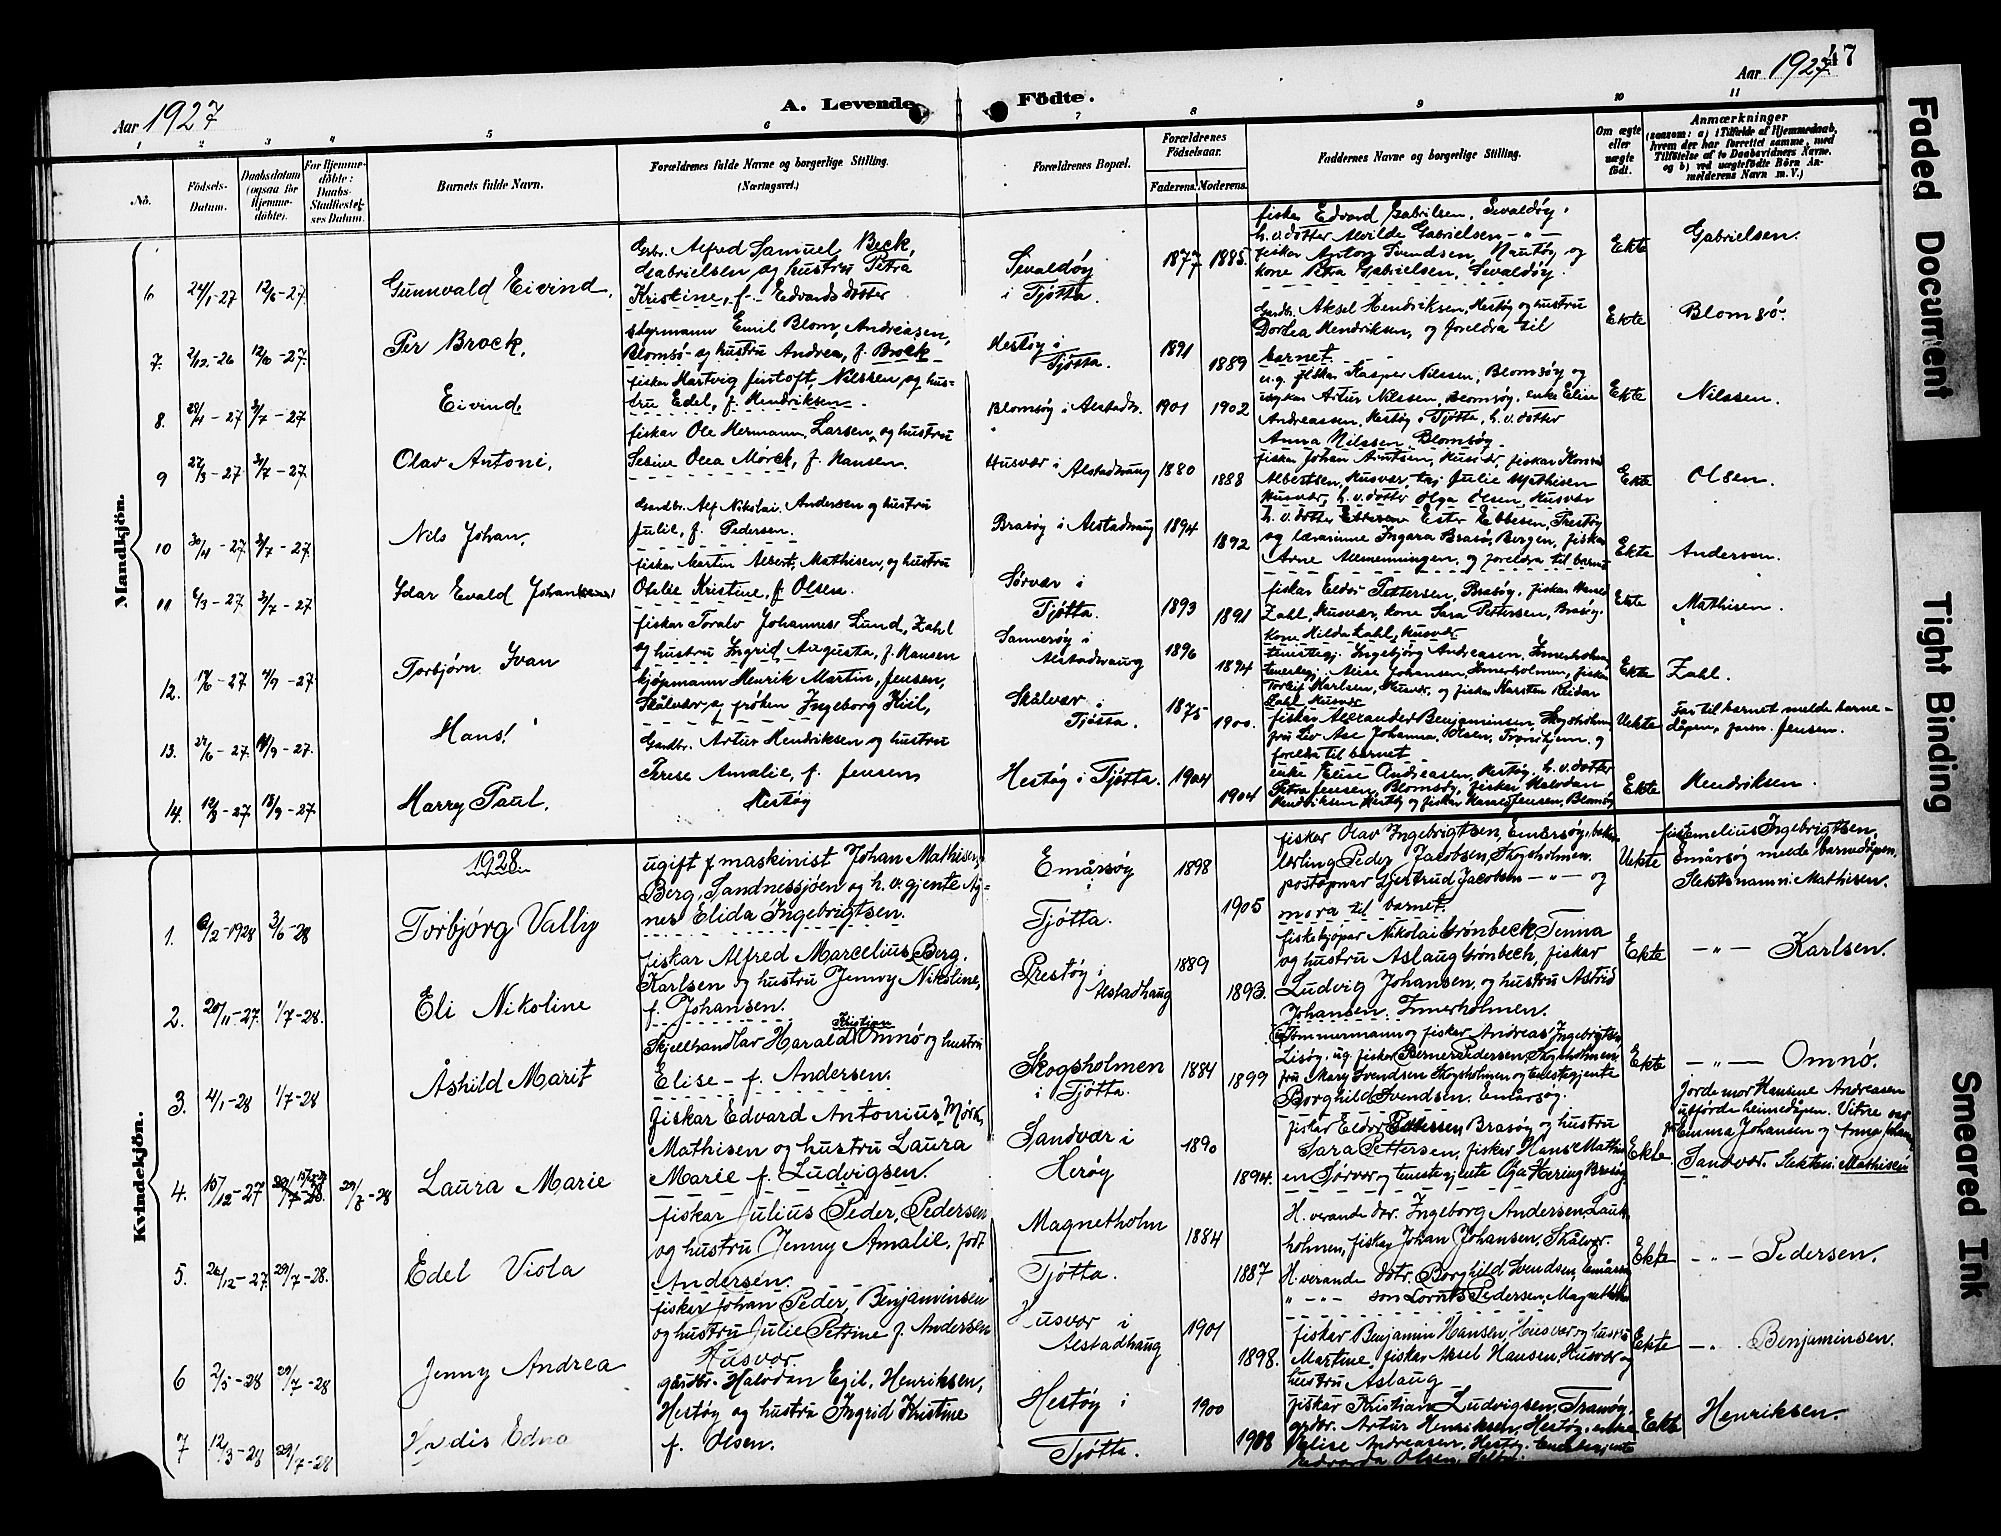 Aar 1927
A. Levende Födte.
Aar 1927
47
1 2 3 4 5 6 7 8 9 10 11
No.
Födsels-Datum.
Daabsdatum (ogsaa for Hjemme-döbte).
For Hjemme-döbte: Daabs-Stadfæstel-ses Datum.
Barnets fulde Navn.
Forældrenes fulde Navne og borgerlige Stilling. (Næringsvei.)
Forældrenes Bopæl.
Forældrenes Födselsaar.
Faderens. Moderens.
Faddernes Navne og borgerlige Stilling.
Om ægte eller uægte födt.
Anmærkninger
(saasom: a) i Tilfælde af Hjemmedaab, hvem der har forrettet samme, med Tilföielse af to Daabsvidners Navne, og b) ved uægtefödte Börn Anmelderens Navn m. V.)
Mandkjön.
6 24/1-27 12/6-27. Gunnvald Eivind.
Gbr. Alfred Samuel Beck,
Gabrielsen og hustru Petra
Kristine, f. Edvardsdotter
Sevaldøy
i Tjøtta.
1877 1885.
fisker Edvard Gabrielsen, Sevaldøy,
h.v.dotter Alvilde Gabrielsen - " -
fisker Anton Svendsen, Nautøy og
kone Petra Gabrielsen, Sevaldøy.
Ekte Gabrielsen.
7. 2/12-26 12/6-27. Per Brock.
styrmann Emil Blom, Andreasen,
Blomsø og hustru Andrea, f. Brock
Hestøy i
Tjøtta.
1891 1889
Gardbr. Aksel Hendriksen, Hestøy og hustru
Dorthea Hendriksen, og foreldra til
barnet.
Ekte Blomsø.
8. 29/4-27 3/7-27. Eivind.
fiskar Hartvig Justoft, Nilssen, og hus-
tru Edel, f. Hendriksen
Blomsøy i Alstadh.
1901 1902
u.g. fiskar Kasper Nilssen, Blomsøy og
Artur Nilssen, Blomsøy, enke Elise
Andreassen, Hestøy i Tjøtta, h.v.dotter
Anna Nilssen, Blomsøy.
Ekte Nilssen.
9 27/3-27. 3/7-27. Olav Antoni.
fiskar Ole Hermann, Larsen, og hustru
Sesine Olea Mørck, f. Hansen.
Husvær i Alstadhaug
1880 1888
fiskar Johan Arntsen, Husvær, fiskar Konrad
Albertsen, Husvær, Julie Mathisen
Husvær, h.v.dotter Olga Olsen, Husvær
Ekte Olsen.
10 30/4-27. 3/7-27. Nils Johan.
Gardbr. Alf Nikolai Andersen og hustru
Julie, f. Pedersen.
Brasøy i Alstadhaug
1894 1892
h.v.dotter Ester Ebbesen, Prestøy
og lærarinne Ingara Brasø, Bergen, fiskar
Arne Allmenningen, og foreldra til barnet
Ekte Andersen.
11 6/3-27. 3/7-27. Idar Evald Johan
fiskar Martin Albert, Mathisen, og hustru
Otelie Kristine, f. Olsen.
Sørvær i
Tjøtta.
1893 1891
fiskar Eldor Pettersen, Brasøy, fiskar Hans
Zahl, Husvær, kone Sara Pettersen, Brasøy.
kone Hilda Zahl, Husvær
Ekte Mathisen.
12. 17/6-27 4/9-27 Torbjørn Ivan
fiskar Toralv Johannes Lund, Zahl
og hustru Ingrid Augusta, f. Hansen
Sannerøy i
Alstadhaug
1896 1894
Ingebjörg Andreasen, Innerholmen,
Johansen, Innerholmen, fiskar
Torleif Karlsen, Husvær, og fiskar Karsten Reidar
Zahl, Husvær
Ekte Zahl.
13. 27/6-27. 18/9-27. Hans!
kjøpmann Henrik Martin, Jensen,
Skålvær, og frøken Ingeborg Kiil,
Skålvær i
Tjøtta.
1875 1900.
fiskar Alexander Benjaminsen Skogsholmen
fru Liv Ase Johanna Olsen, Trondhjem og
foreldra til barnet
Uekte
Far til barnet melde barne-
dåpen, farn. Jensen.
14. 19/8-27 18/9-27. Harry Paul.
Gardbr. Artur Hendriksen og hustru
Terese Amalie, f. Jensen,
Hestøy
Hestøy i Tjøtta.
1904 1904
enke Elise Andreasen, Hestøy, h.v.dotter
Petra Jensen, Blomsøy, fiskar Halvdan
Hendriksen Hestøy og fiskar Hans Jensen, Blomsøy
Ekte Hendriksen.
Kvindekjön.
1928.
1. 6/2-1928 3/6-28 Torbjørg Valby
ugift f. maskinist Johan Mathisen,
Berg, Sandnessjøen og h.v. gjente Ag-
nes Elida Ingebrigtsen.
Emårsøy
i
Tjøtta.
1898 1905
fiskar Olav Ingebrigtsen, Emårsøy,
lerling Peder Jacobsen, Skogsholmen.
postopnar Gjertrud Jacobsen - " - og
mora til barnet.
Uekte
Emelius Ingebrigtsen,
Emårsøy melde barnedåpen.
Slektsnamn: Mathisen.
2. 20/11-27. 1/7-28. Eli Nikoline
fiskar Alfred Marcelius Berg.
Karlsen og hustru Jenny Nikoline,
f. Johansen.
Prestøy i
Alstadhaug
1889 1893.
fiskekjøpar Nikolai Grönbeck, Tenna
og hustru Aslaug Grönbech, fiskar
Ludvig Johansen, og hustru Astrid
Johansen. Innerholmen.
Ekte - " - Karlsen.
3. 4/1-28 1/7-28 Åshild Marit
Skjellhandlar Harald Kristian Omnø og hustru
Elise - f. Andersen.
Skogsholmen
i Tjøtta.
1884 1899
Tømmermann og fiskar Andreas Ingebrigtsen
Lisøy, ug. fiskar Berner Pedersen, Skogsholmen
fru Mary Svendsen Skogsholmen og tenestegjente
Borghild Svendsen. Emårsøy.
Ekte - " - Omnø.
4. 15/12-27 29/7-28. 29/7-28 Laura Marie
fiskar Edvard Antonius Mörk,
Mathisen og hustru Laura
Marie f. Ludvigsen.
Sandvær i
Herøy
1890 1894.
fiskar Eldor Pettersen Brasøy og hustru
Sara Pettersen, fiskar Hans Mathis
en Sørvær og tenestegjente Olga Hæring Brasøy
Ekte.
Jordemor Hansine Andreasen
utførde heimedåpen. Vitne var
Emma Johansen og Anna Johans
Sandvær. Slektn. Mathisen
5. 26/12-27. 29/7-28. Edel Viola
fiskar Julius Peder, Pedersen
og hustru Jenny Amalie, født
Andersen.
Magnetholm
Tjøtta.
1884 1887
H.verande dtr. Ingeborg Andersen, Lauk
holmen, fiskar Johan Johansen, Skålvær.
H.verande dotr. Borghild Svendsen, Emårsøy
" - " - son Lornts Pedersen, Magnethlm
Ekte - " - Pedersen.
6 2/5-28 29/7-28 Jenny Andrea
fiskar Johan Peder, Benjaminsen
og hustru Julie Petrine f. Andersen
Husvær.
Husvær i
Alstadhaug
1901 1898.
fiskar Benjamin Hansen, Husvær og hustru
Martine, fiskar Aksel Hansen, Husvær og
hustru Aslaug
Ekte - " - Benjaminsen.
7 12/3-28 29/7-28 Hjrdis Edna
gardbr. Halvdan Egil, Henriksen,
Hestøy og hustru Ingrid Kristine
f. Olsen.
Hestøy i
Tjøtta.
1900 1908
fiskar Kristian Ludvigsen, Tranøy,
grdbr. Artur Henriksen, Hestøy, enka
Elise Andreasen, Hestøy. tenestegjente
Edvarda Olsen,
Ekte Henriksen.
Faded Document
Tight Binding
Smeared Ink